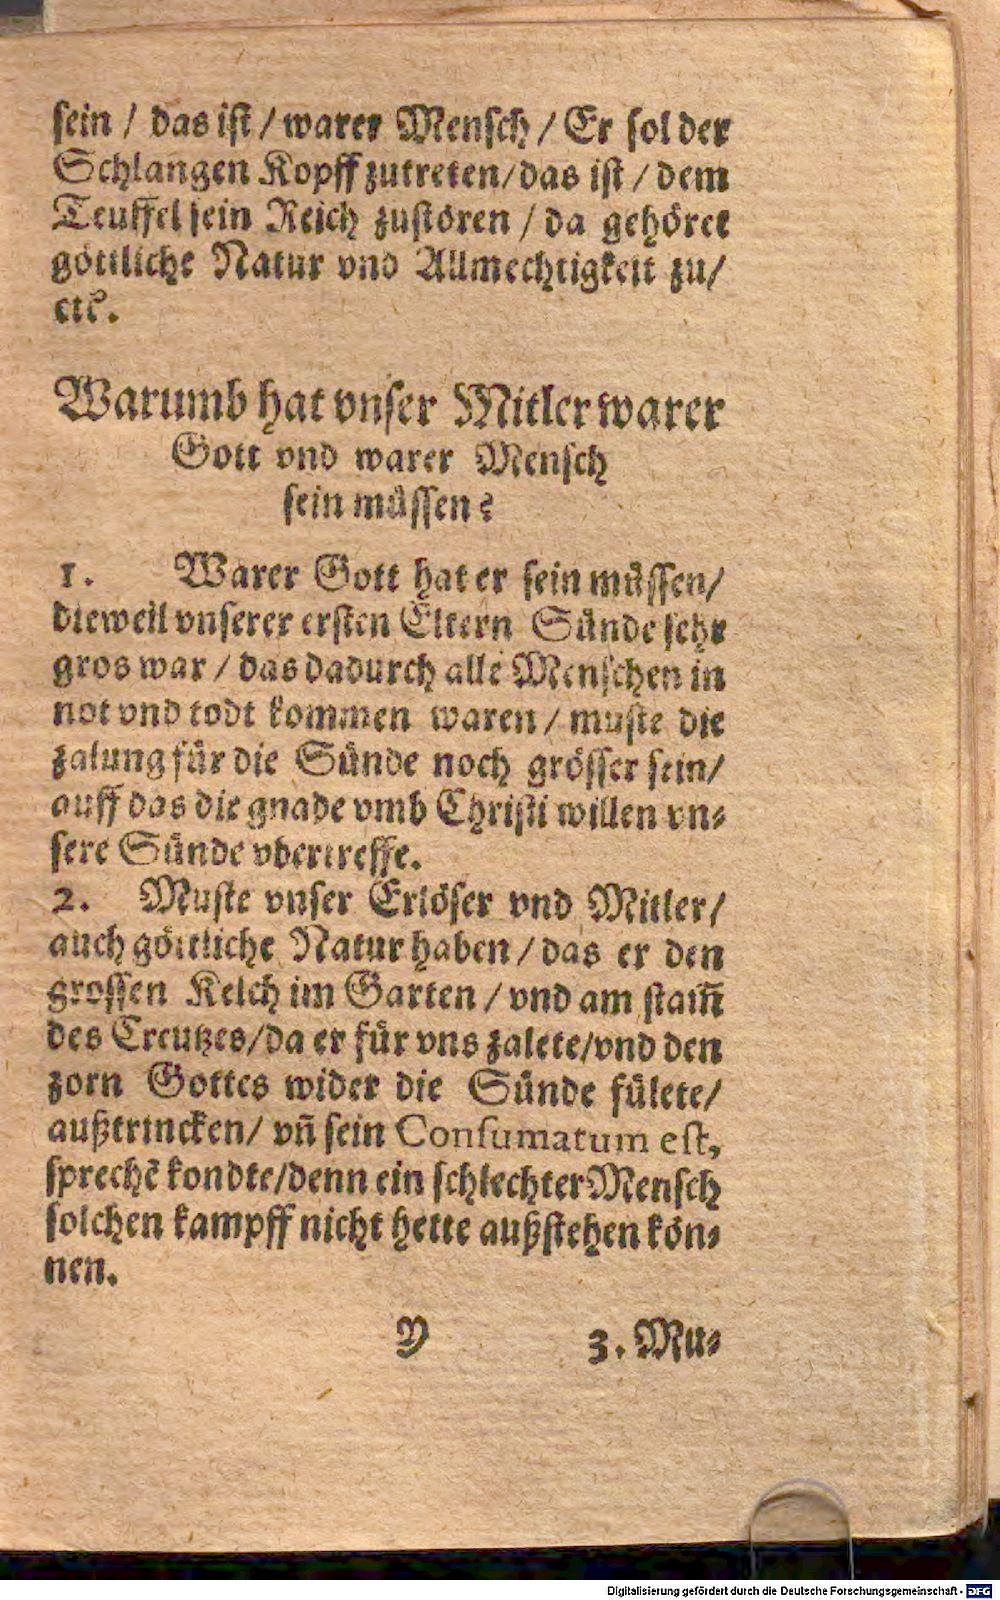 sein / das ist / warer Mensch / Er sol der
Schlangen Kopff zutreten / das ist / dem
Teuffel sein Reich zustören / da gehöret
göttliche Natur vnd Allmechtigkeit zu /
etc.
Warumb hat vnser Mitler warer
Gott vnd warer Mensch
sein müssen?
1. Warer Gott hat er sein müssen /
dieweil vnserer ersten Eltern Sünde sehr
gros war / das dadurch alle Menschen in
not vnd todt kommen waren / muste die
zalung für die Sünde noch grösser sein /
auff das die gnade vmb Christi willen vn-
sere Sünde vbertreffe.
2. Muste vnser Erlöser vnd Mitler /
auch göttliche Natur haben / das er den
grossen Kelch im Garten / vnd am stam̃
des Creutzes / da er für vns zalete / vnd den
zorn Gottes wider die Sünde fülete /
außtrincken / vñ sein Consumatum est,
sprechẽ kondte / denn ein schlechter Mensch
solchen kampff nicht hette außstehen kön-
nen.
Y 3. Mu-
Digitalisierung gefördert durch die Deutsche Forschungsgemeinschaft - DFG